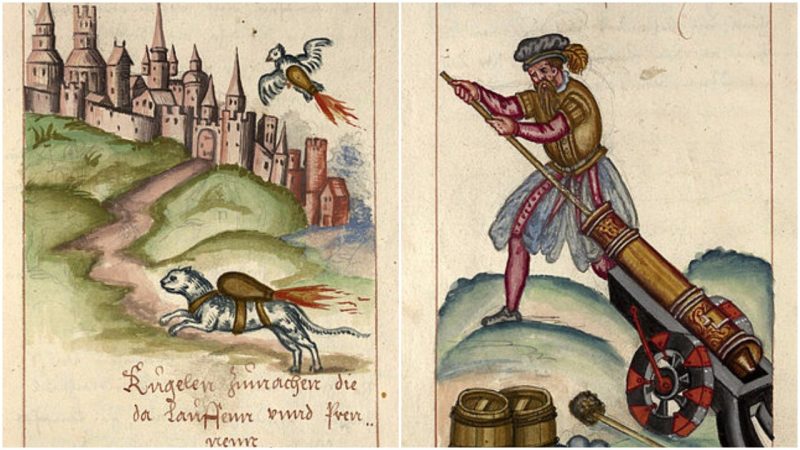 Kugelen Zumachen die
da Lauffenn vnnd Pren„
nenn